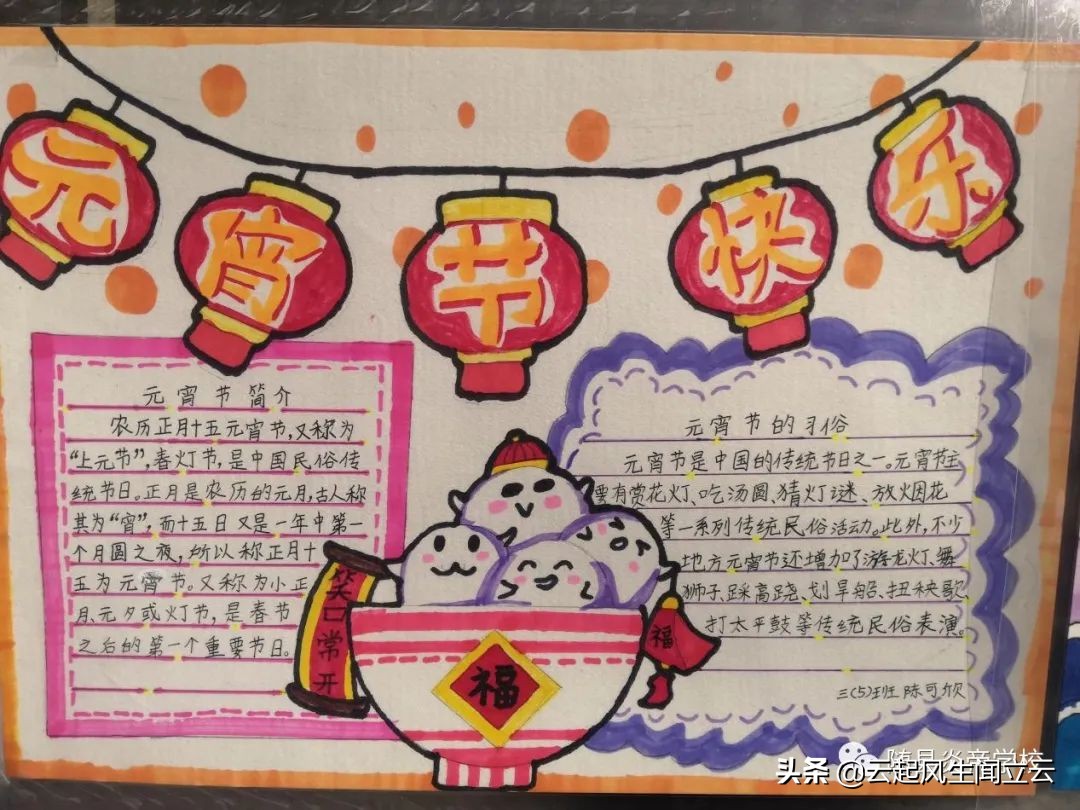 元宵节快乐
元宵节简介
农历正月十五元宵节,又称为
“上元节”,春灯节,是中国民俗传
统节日。正月是农历的元月,古人称
其为“宵”,而十五日又是一年中第一
个月圆之夜,所以称正月十
五为元宵节。又称为小正
月、元夕或灯节,是春节
之后的第一个重要节日。
元宵节的习俗
元宵节是中国的传统节日之一。元宵节主
要有赏花灯、吃汤圆、猜灯谜、放烟花
等一系列传统民俗活动。此外,不少
地方元宵节还增加了游龙灯、舞
狮子、踩高跷、划旱船、扭秧歌
打太平鼓等传统民俗表演。
三(5)班 陈可欣
笑口常开
福
福
随县炎帝学校
头条 @云起风生闻立云